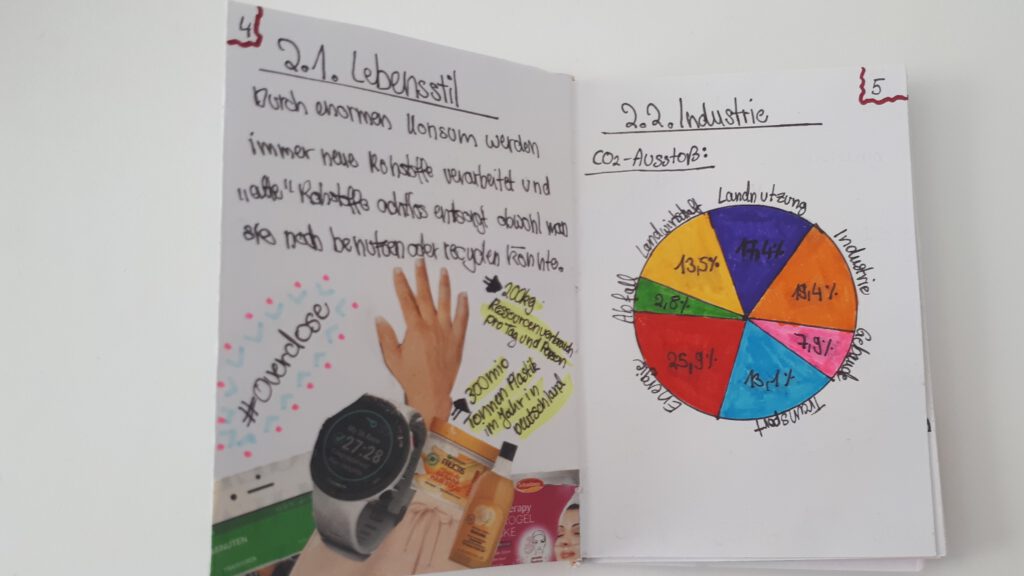 4
2.1. Lebensstil
Durch enormen Konsum werden
immer neue Rohstoffe verarbeitet und
"alte" Rohstoffe achtlos entsorgt obwohl man
sie noch benutzen oder recyclen könnte.
#overdose
200kg
Ressourcenverbrauch
pro Tag und Person
300mio
Tonnen Plastik
im Jahr in
Deutschland
27:28
FRUCTIS
MINUTEN
5
2.2. Industrie
CO2-Ausstoß:
Landnutzung
17,4%
Industrie
18,4%
Gebäude
7,9%
Transport
15,1%
Energie
25,9%
Abfall
2,8%
Landwirtschaft
13,5%